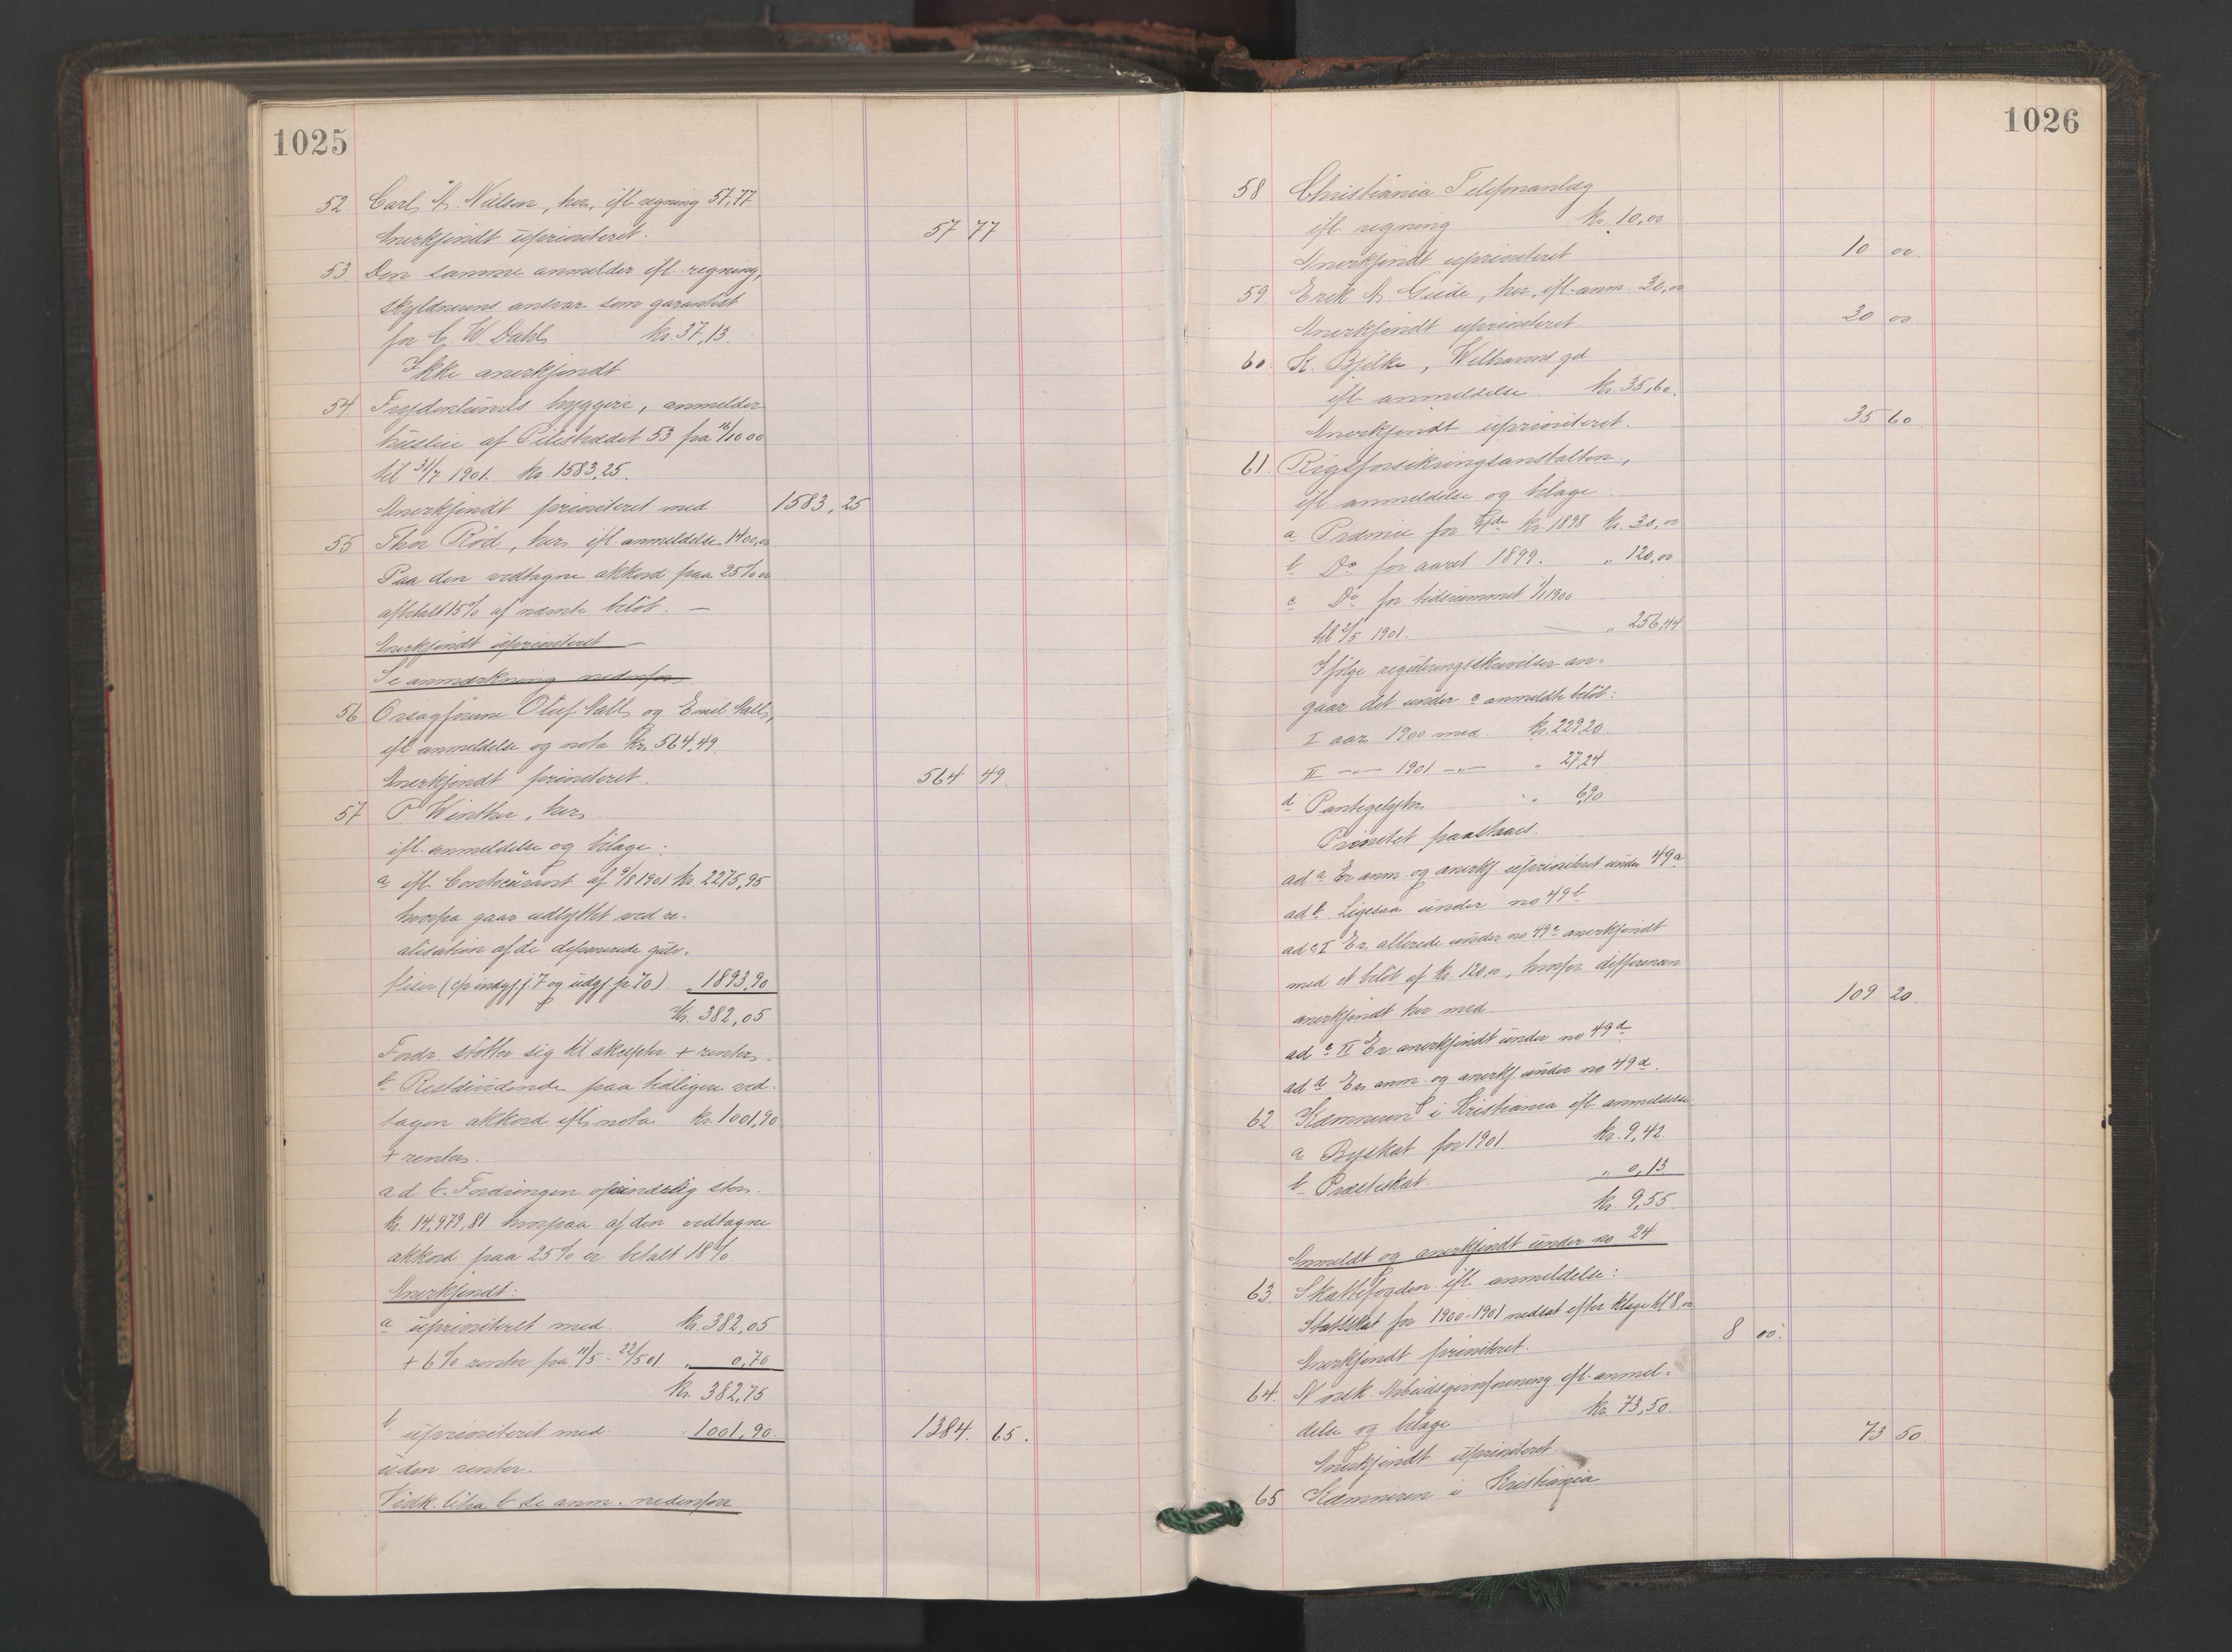 1025
52. Carl A. Nielsen, her, ifl regning 57,77
Anerkjendt uprioriteret. 57 77
53. Den samme anmelder ifl regning,
skyldnerens ansvar som garantist
for C. W. Dahl kr. 37,13.
Ikke anerkjendt
54. Frydenlunds bryggeri, anmelder
husleie af Pilestrædet 53 fra 15/10 00
til 31/7 1901. kr. 1583,25.
Anerkjendt prioriteret med 1583,25
55 Thor Röd, her, ifl anmeldelse 1400,00
Paa den vedtagne akkord paa 25% er
afbetalt 15% af nævnte belöb. —
Anerkjendt uprioriteret
Se anmærkning nedenfor
56 Orsagförerne Oluf Aall og Emil Aall,
ifl anmeldelse og nota kr. 564,49
Anerkjendt prioriteret. 564 49
57 P. Winther, her,
ifl. anmeldelse og bilage:
a ifl. Contocurant af 9/8 1901 kr. 2275,95
hvorpa gaar udbyttet ved re-
alisation af de deponerede gulv-
fliser (cfr indgj j. 7 og udgj. p 70) „ 1893,90
Kr. 382,05
Fordr. stötter sig til aksepter + renter.
b Restdividende paa tidligere ved-
tagen akkord ifl. nota kr. 1001,90
+ renter.
ad b. Fordringen oprindelig stor
kr. 14,979,81 hvorpaa af den vedtagne
akkord paa 25% er betalt 18%
Anerkjendt:
a uprioriteret med kr. 382,05
+ 6% renter fra 11/5 - 22/5 01 „ 0,70
kr. 382,75
b uprioriteret med 1001,90. 1384.65.
uden renter.
Vedk. litra b se anm. nedenfor
1026
58 Christiania Telefonanlæg
ifl. regning kr. 10,00
Anerkjendt uprioriteret 10 00
59. Erik A. Gude, her, ifl. anm. 20,00
Anerkjendt uprioriteret 20 00
60. K. Bjelke, Welhavens gd
ifl anmeldelse kr. 35,60.
Anerkjendt uprioriteret. 35 60
61 Rigsforsikringsanstalten,
ifl anmeldelse og bilage:
a Præmie for kr. 1898 kr. 30,00
b Do for aaret 1899. „ 120,00
c Do for tidsrummet 1/1 1900
til 2/5 1901. „ 256,44
Ifölge reguleringsskrivelser an-
gaar det under c anmeldte belöb:
I aar 1900 med kr. 229,20
II —„— 1901 —„— „ 27,24
d Pantegebyhr „ 6,90
Prioritet paastaaes.
ad a Er anm. og anerkj. uprioriteret under 49a
ad b Ligesaa under no 49b
ad c I Er allerede under no 49c anerkjendt
med et belöb af kr. 120,00, hvorfor differencen
anerkjendt her med 109 20
ad c II Er anerkjendt under no 49d
ad d Er anm. og anerkj. under no 49d.
62 Kæmneren i Kristiania ifl anmeldelse
a Byskat for 1901. kr. 9,42
b Præsteskat. „ 0,13
kr. 9,55
Anmeldt og anerkjendt under no 24
63 Skattefogden ifl. anmeldelse:
Statsskat for 1900-1901 nedsat efter klage til 8,00
Anerkjendt prioriteret. 8 00.
64. Norsk Arbeidsgiverforening ifl. anmel-
delse og bilage kr. 73,50.
Anerkjendt uprioriteret 73 50
65 Kæmneren i Kristiania